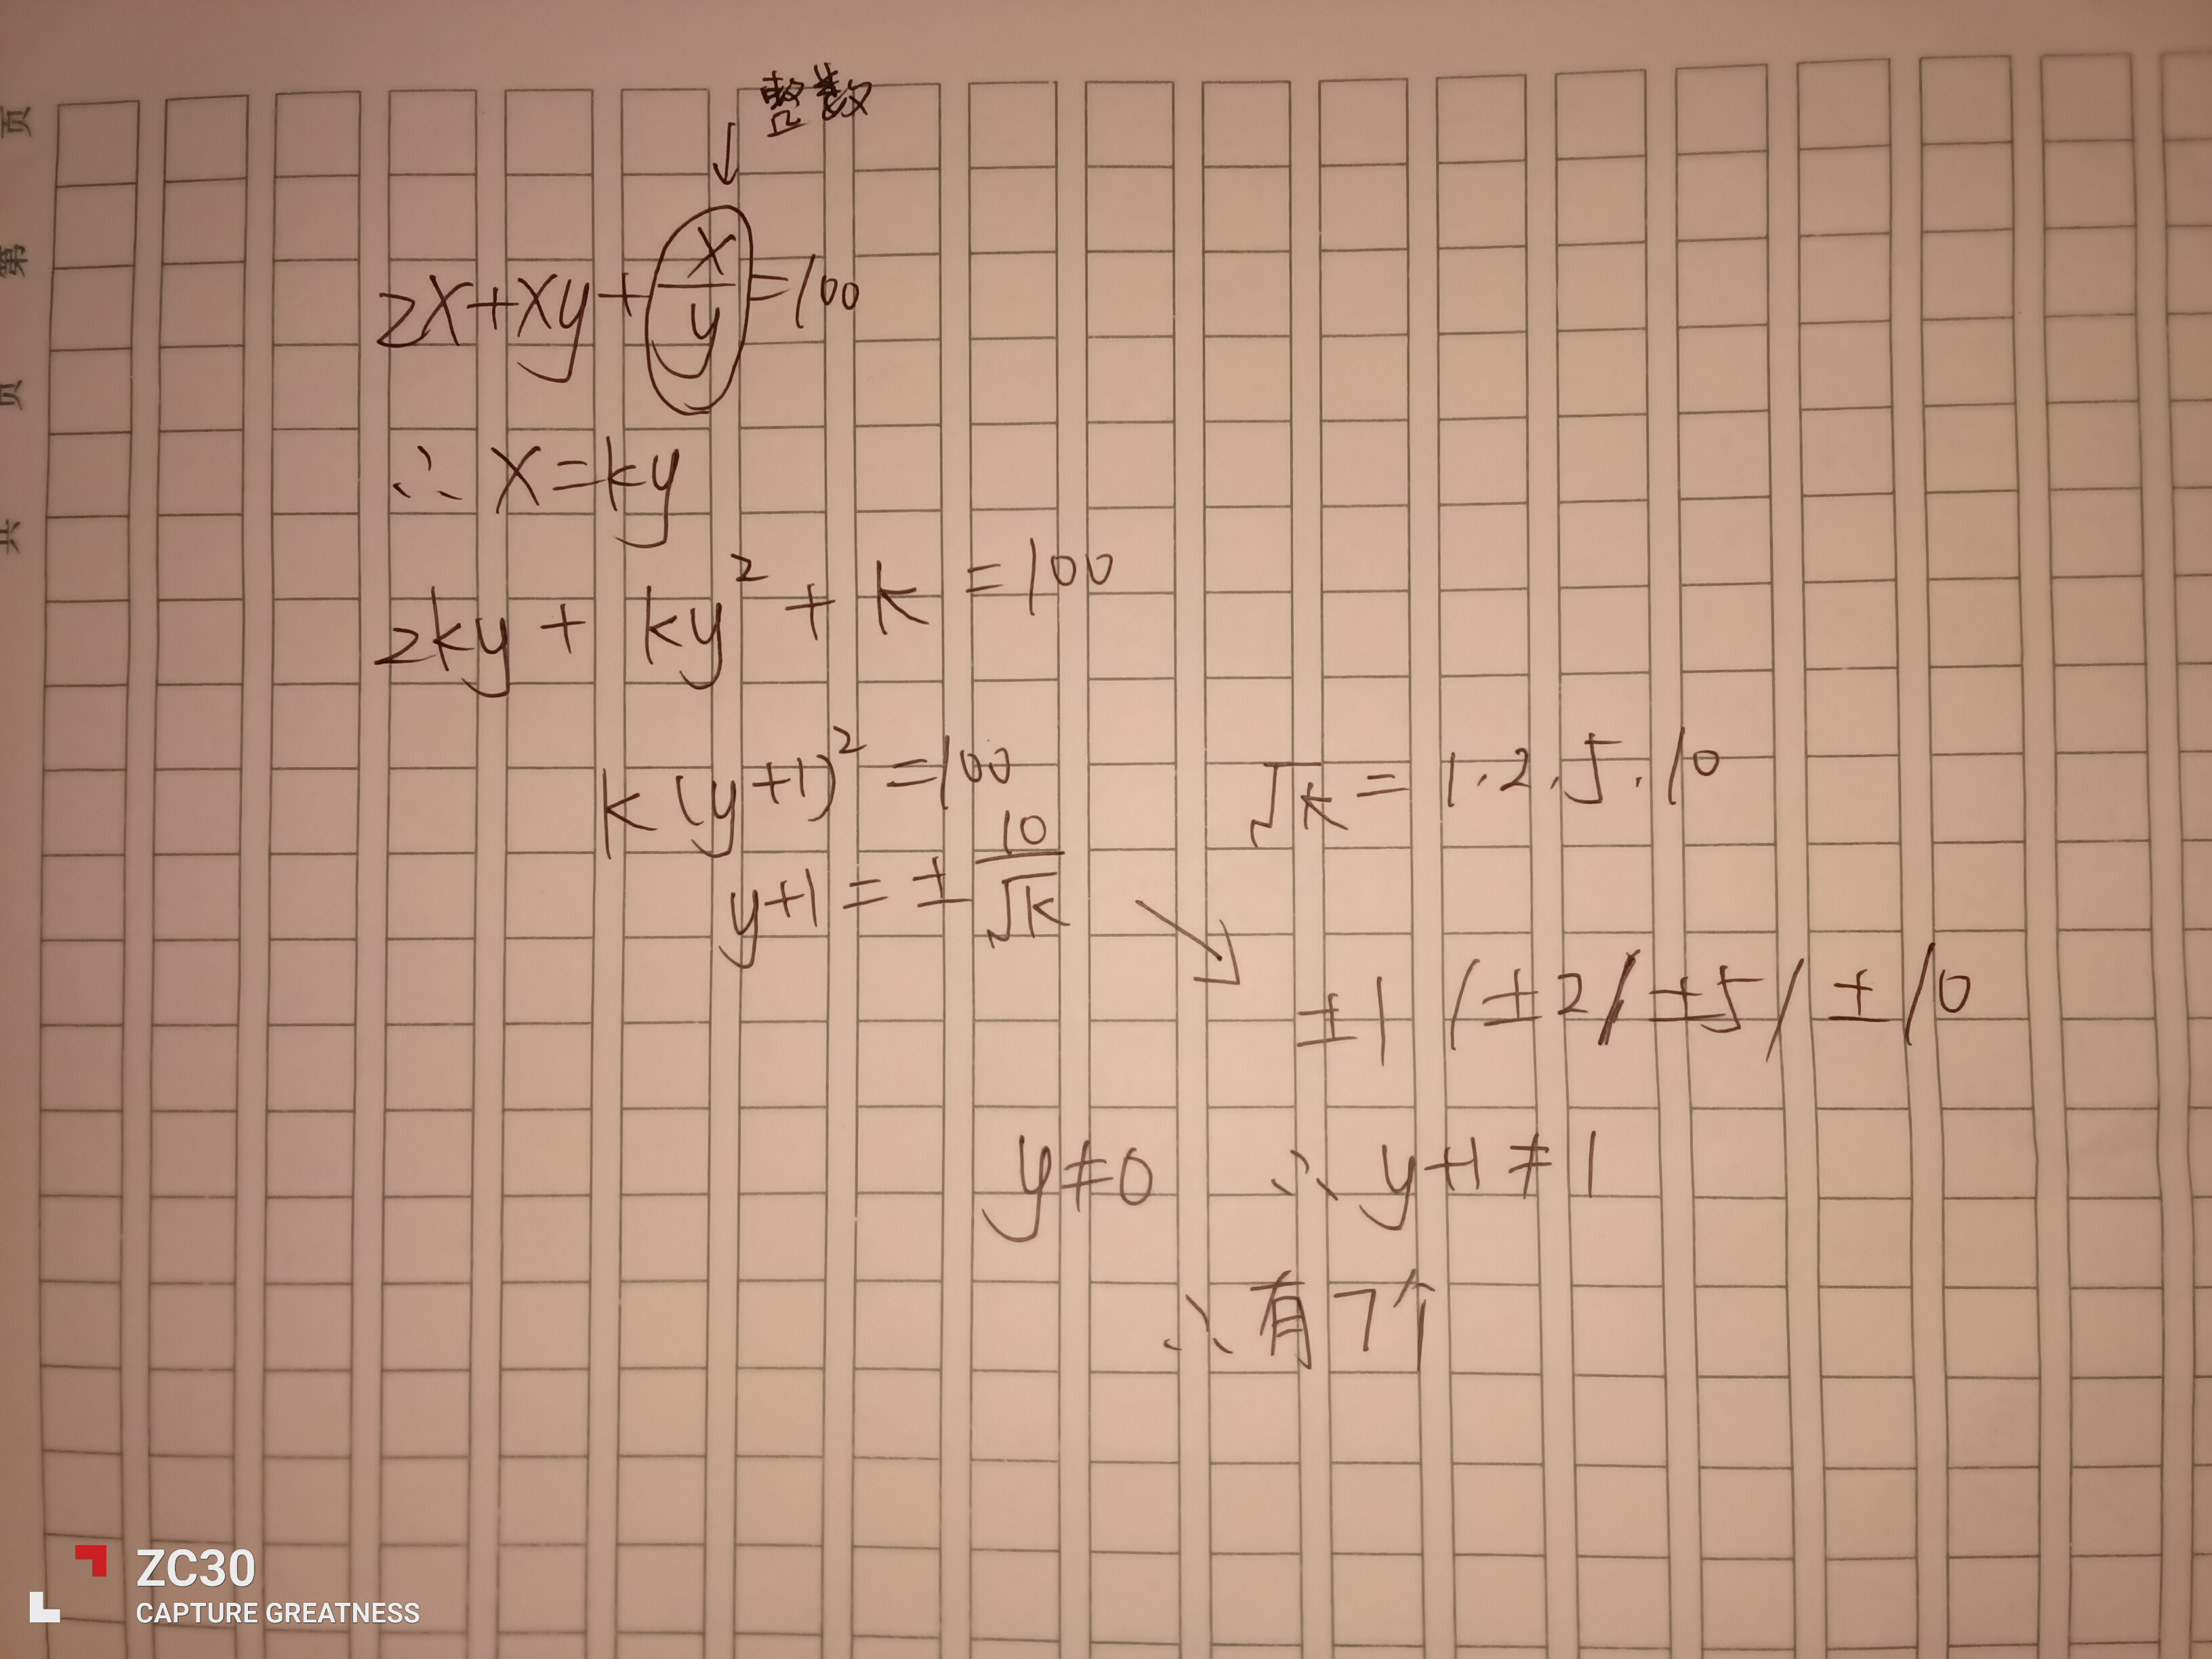 页
第
页
共
整数
↓
2x+xy+x/y=100
∴ x=ky
2ky+ky²+k=100
k(y+1)²=100
√k=1.2.5.10
y+1=±10/√k
±1/±2/±5/±10
y≠0 ∴y+1≠1
∴有7个
ZC30
CAPTURE GREATNESS